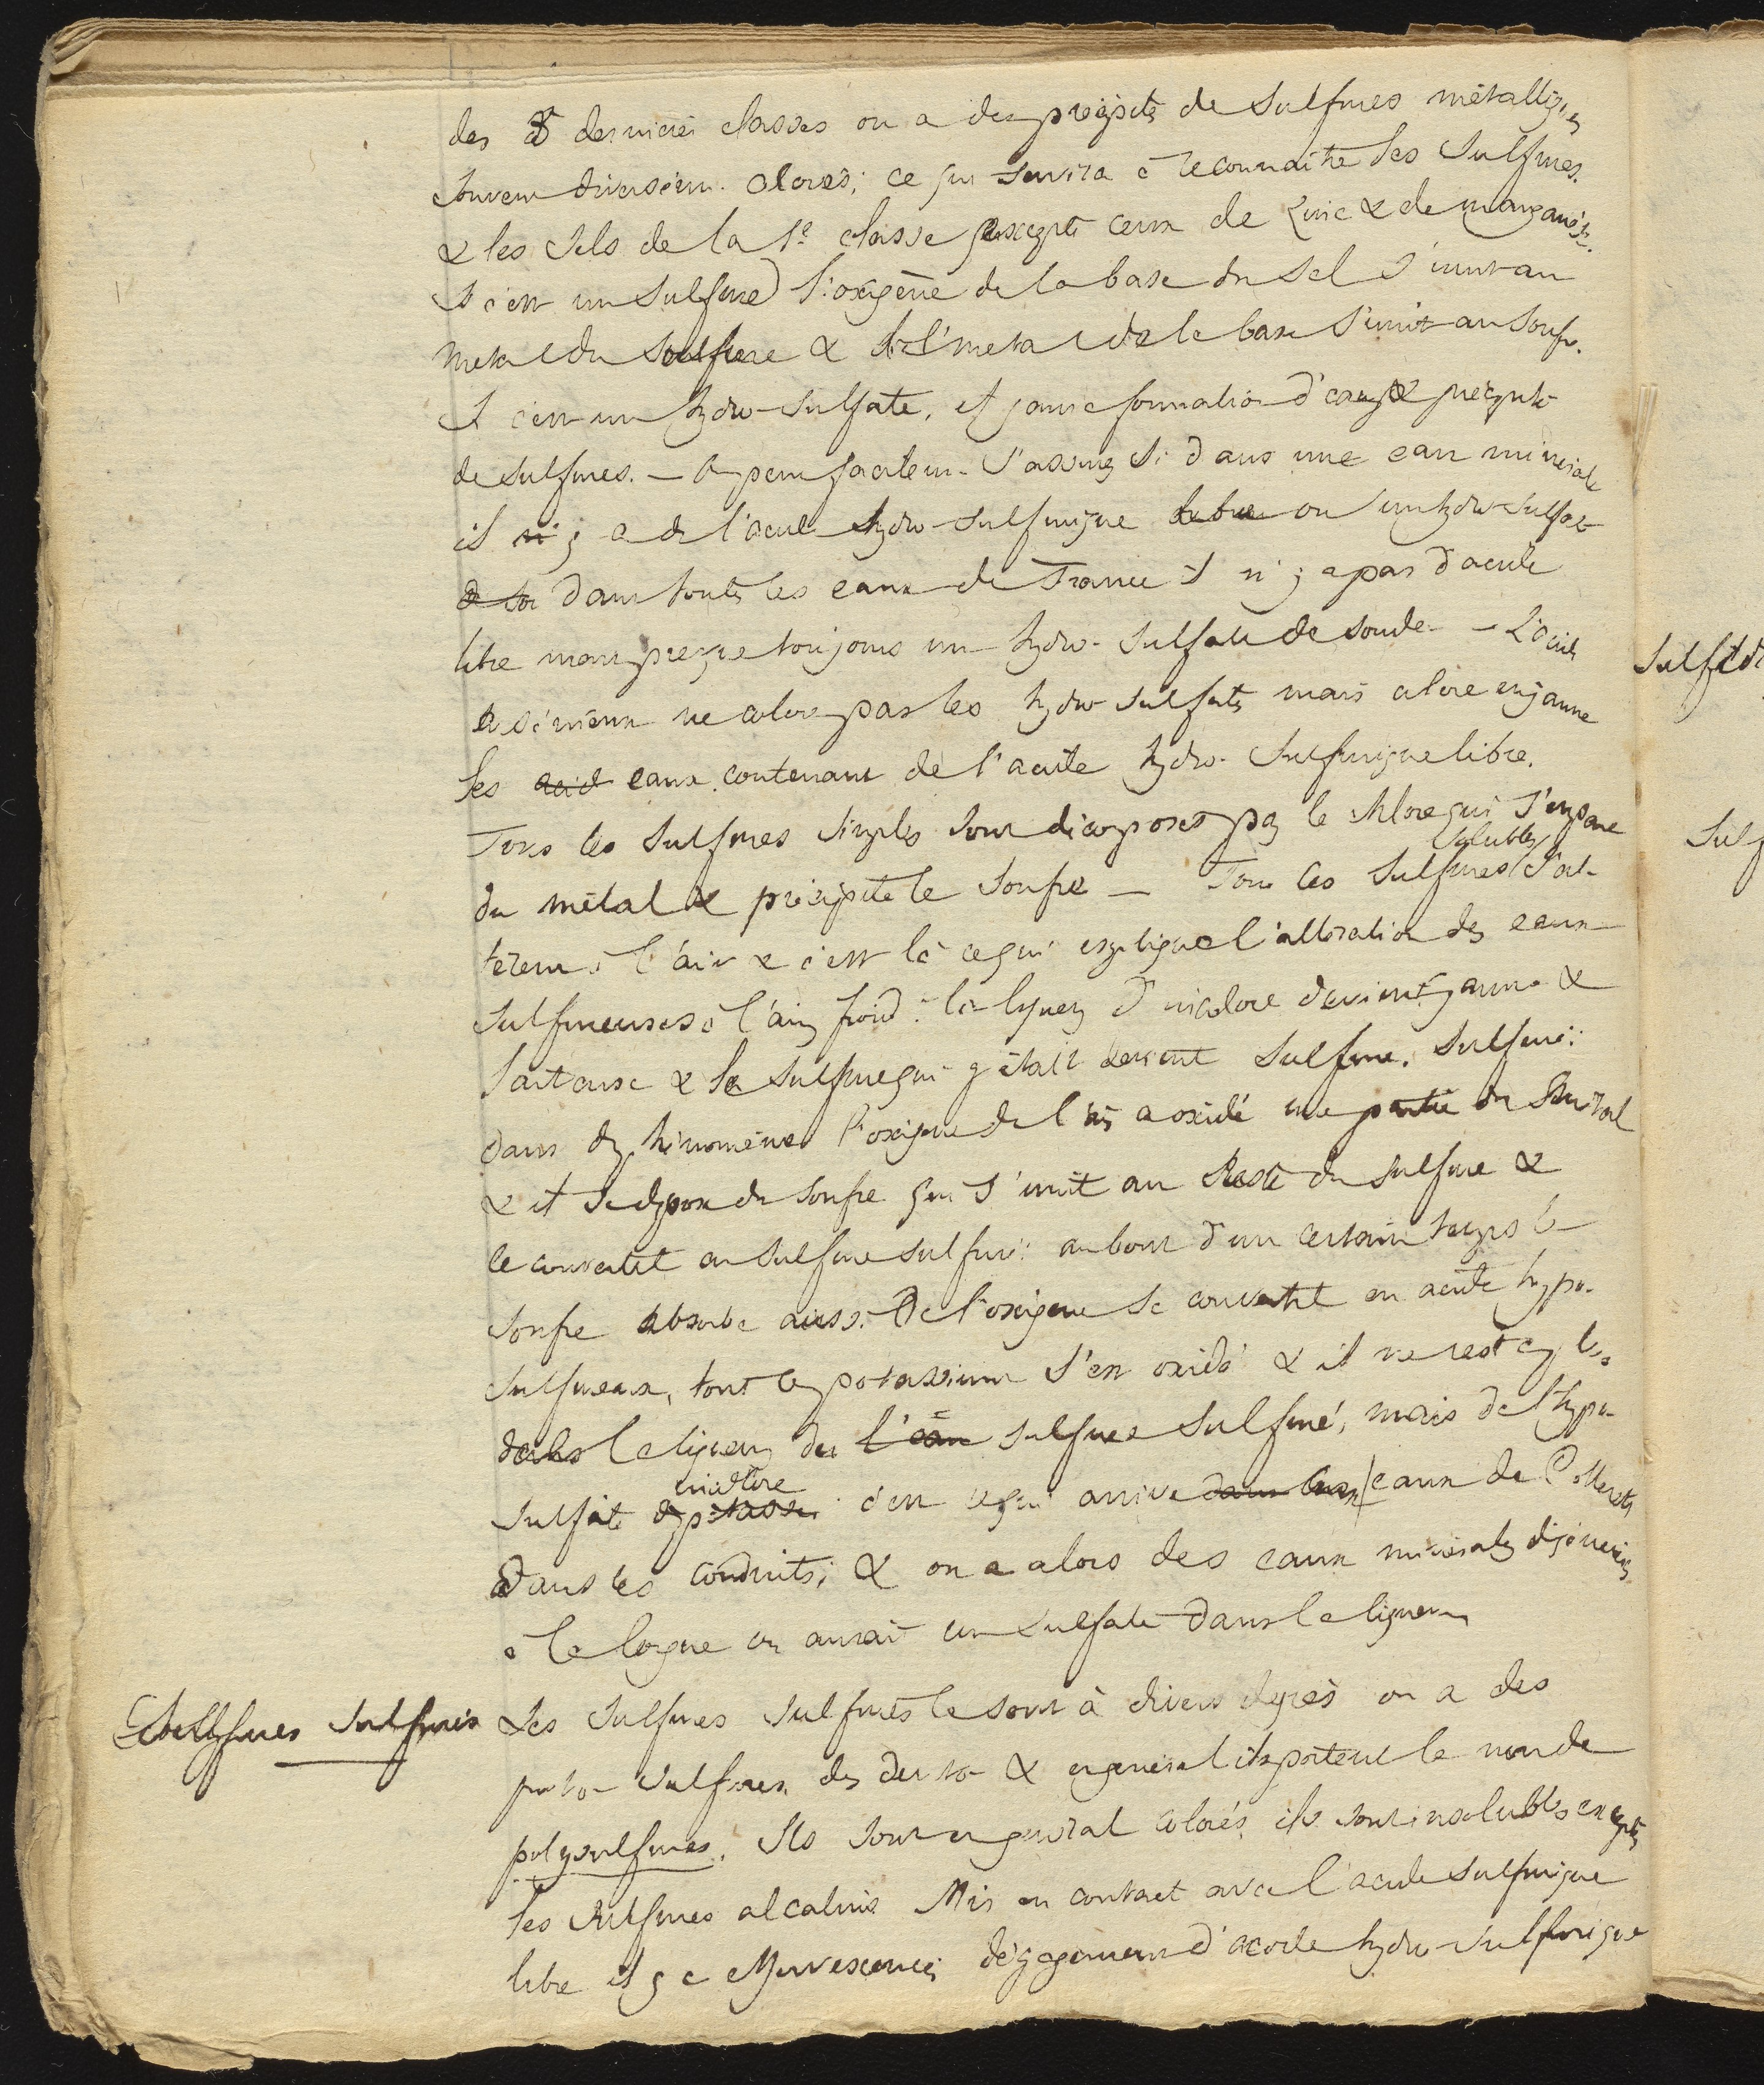 des 3 dernieres classes on a des precipités de sulfures métalliques
souvent diversem. colorés; ce qui servira à reconnaitre les sulfures.
& les sels de la 1e classe excepté ceux de zinc & de manganèse.
Si c'est un sulfure) l'oxigène de la base du sel s'unit au
metal du sulfure & le metal de la base s'unit au soufre.
Si c'est un hydro-sulfate, il y aura formation d'eau & precipité
de sulfures. — On peut facilem. s'assurer si dans une eau minerale
il y a de l'acide hydro-sulfurique libre ou un hydro-sulfate
dans toutes les eaux de France il n'y a pas d'acide
libre mais presque toujours un hydro-sulfate de soude — L'acide
arsénieux ne colore pas les hydro-sulfates mais colore en jaune
les acid eaux contenant de l'acide hydro-sulfurique libre.
Tous les sulfures simples sont décomposés par le chlore qui s'empare
du métal & précipite le soufre — Tous les sulfures solubles s'al-
terent à l'air & c'est là ce qui explique l'altération des eaux
sulfureuses à l'air froid: la liqueur d'incolore devient jaune &
laiteuse & le sulfure qui y était devient sulfure sulfuré:
dans ce phénomène l'oxigène de l'air a oxidé une partie du métal
& il se dépose du soufre qui s'unit au reste du sulfure &
le convertit en sulfure sulfuré: au bout d'un certain temps le
soufre absorbe aussi de l'oxigène se convertit en acide hypo-
sulfureux, tout le potassium s'est oxidé & il ne reste plus
dans la liqueur du l'eau sulfure sulfuré, mais de l'hypo-
sulfite de potasse incolore: c'est ce qui arrive dans les eaux de
dans les conduits; & on a alors des eaux minerales dégénérées
à la longue on aurait un sulfate dans la liqueur
Sulfures sulfurés Les sulfures sulfurés le sont à divers degrés on a des
proto-sulfures, des deuto- & en general ils portent le nom de
polysulfures. Ils sont en general colorés, ils sont insolubles excepté
les sulfures alcalins. Mis en contact avec l'acide sulfurique
libre il y a effervescence, dégagement d'acide hydro-sulfurique